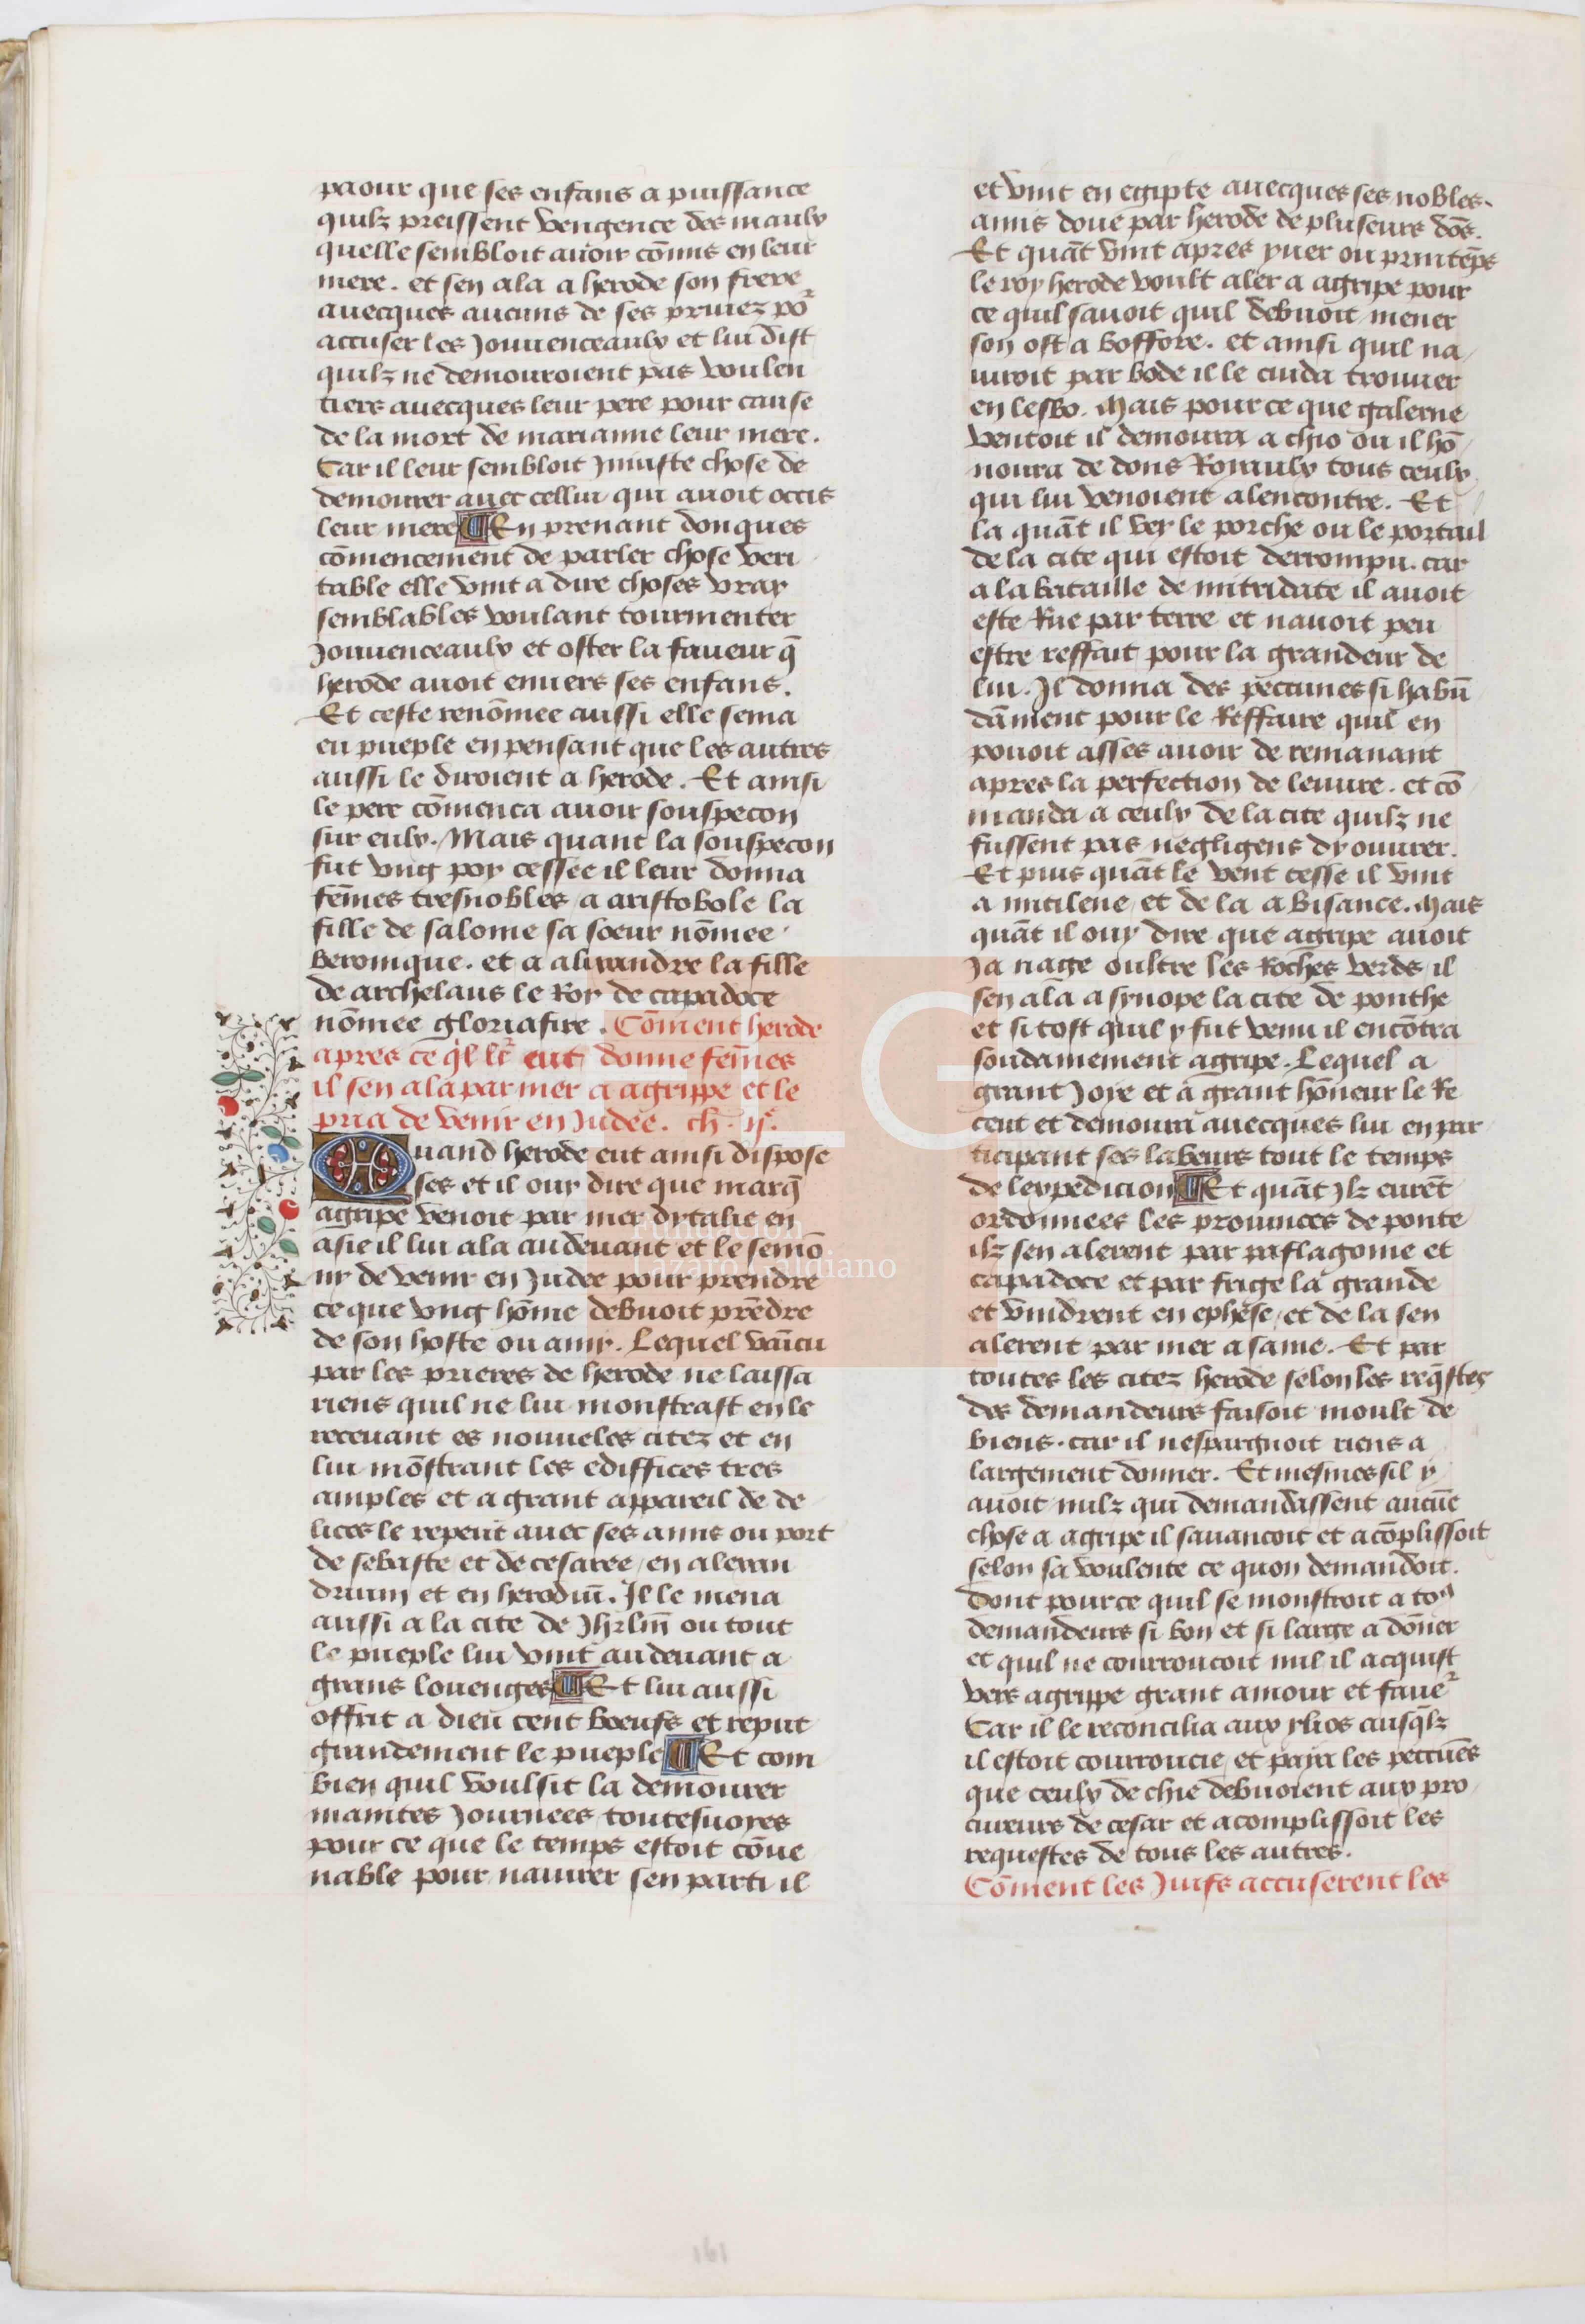 paour que ses enfans a puissance
quilz preissent vengence des maulx
quelle sembloit auoir cõmis en leur
mere. et sen ala a herode son frere
auecques aucuns de ses priuez po᷑
accuser les Jouuenceaulx et lui dist
quilz ne demouroient pas voulen
tiers auecques leur pere pour cause
de la mort de marianne leur mere.
Car il leur sembloit Jniuste chose de
demourer auec cellui qui auoit occis
leur mere ¶ En prenant donques
cõmencement de parler chose veri
table elle vint a dire choses vray
semblables voulant tourmenter
Jouuenceaulx et oster la faueur q̃
herode auoit enuers ses enfans.
Et ceste renõmee aussi elle sema
eu pueple en pensant que les autres
aussi le diroient a herode. Et ainsi
le pere cõmenca auoir souspecon
sur eulx. Mais quant la souspecon
fut vng poy cessee il leur donna
fẽmes tresnobles / a aristobole la
fille de salome sa soeur nõmee
beronique. et a alixandre la fille
de archelaus le Roy de capadoce
nõmee gloriafire. Cõment herode
apres ce q̃l le᷑ eut donne fẽmes
il sen ala par mer a agrippe et le
pria de venir en Judee. ch. ij.ᵉ
Quand herode eut ainsi dispose
ses et il ouy dire que marq̃
agripe venoit par mer dytalie en
asie il lui ala audeuant et le semõ
nir de venir en Judee pour prendre
ce que vng hõme debuoit prẽdre
de son hoste ou amy. Lequel vaĩcu
par les prieres de herode ne laissa
riens quil ne lui monstrast en le
receuant es nouueles citez et en
lui mõstrant les ediffices tres
amples et a grant appareil de de
lices le reput auec ses amis ou port
de sebaste et de cesaree / en alexan
drium et en herodiũ. Il le mena
aussi a la cite de Jhrlm̃ ou tout
le pueple lui vint audeuant a
grans louenges ¶ Et lui aussi
offrit a dieu cent boeufs et reput
grandement le pueple ¶ Et com
bien quil voulsit la demourer
maintes Journees toutesuoyes
pour ce que le temps estoit cõue
nable pour nauirer sen parti il
et vint en egipte auecques ses nobles
amis doue par herode de pluseurs dõs.
Et quãt vint apres yuer ou printẽps
le roy herode voult aler a agripe pour
ce quil sauoit quil debuoit mener
son ost a boffore. et ainsi quil na
uiroit par bode il le cuida trouuer
en lesbo. Mais pour ce que galerne
ventoit il demoura a chio ou il hõ
noura de dons Royaulx tous ceulx
qui lui venoient alencontre. Et
la quãt il vey le porche ou le portail
de la cite qui estoit derrompu. car
a la bataille de mitridate il auoit
este Rue par terre et nauoit peu
estre reffait pour la grandeur de
lui. Il donna des peccunes si habũ
dãment pour le Reffaire quil en
pouoit asses auoir de remanant
apres la perfection de leuure. et cõ
manda a ceulx de la cite quilz ne
fussent pas negligens dy ouurer.
Et puis quãt le vent cesse il vint
a mitilene / et de la a bisance. Mais
quãt il ouy dire que agripe auoit
Ja nage oultre les Roches verds il
sen ala a synope la cite de ponthe
et si tost quil y fut venu il encõtra
soudainement agripe. Lequel a
grant Joye et a grant hõneur le Re
ceut et demoura auecques lui en par
ticipant ses labeurs tout le temps
de lexpedicion ¶ Et quãt Jlz eurẽt
ordonnees les prouinces de ponte
ilz sen alerent par paflagonie et
capadoce et par frige la grande
et vindrent en ephese / et de la sen
alerent par mer a same. Et par
toutes les citez herode selon les req̃stes
des demandeurs faisoit moult de
biens. car il nespargnoit riens a
largement donner. Et mesmes sil y
auoit nulz qui demandassent aucũe
chose a agripe il sauancoit et acõplissoit
selon sa voulente ce quon demandoit.
dont pource quil se monstroit a toꝰ
demandeurs si bon et si large a dõner
et quil ne courroucoit nul il acquist
vers agrippe grant amour et faue᷑
Car il le reconcilia aux ylios ausq̃lz
il estoit courroucie / et paya les peccuẽs
que ceulx de chie debuoient aux pro
cureurs de cesar et acomplissoit les
requestes de tous les autres.
Cõment les Juifs accuserent les
161
Fundación
Lázaro Galdiano